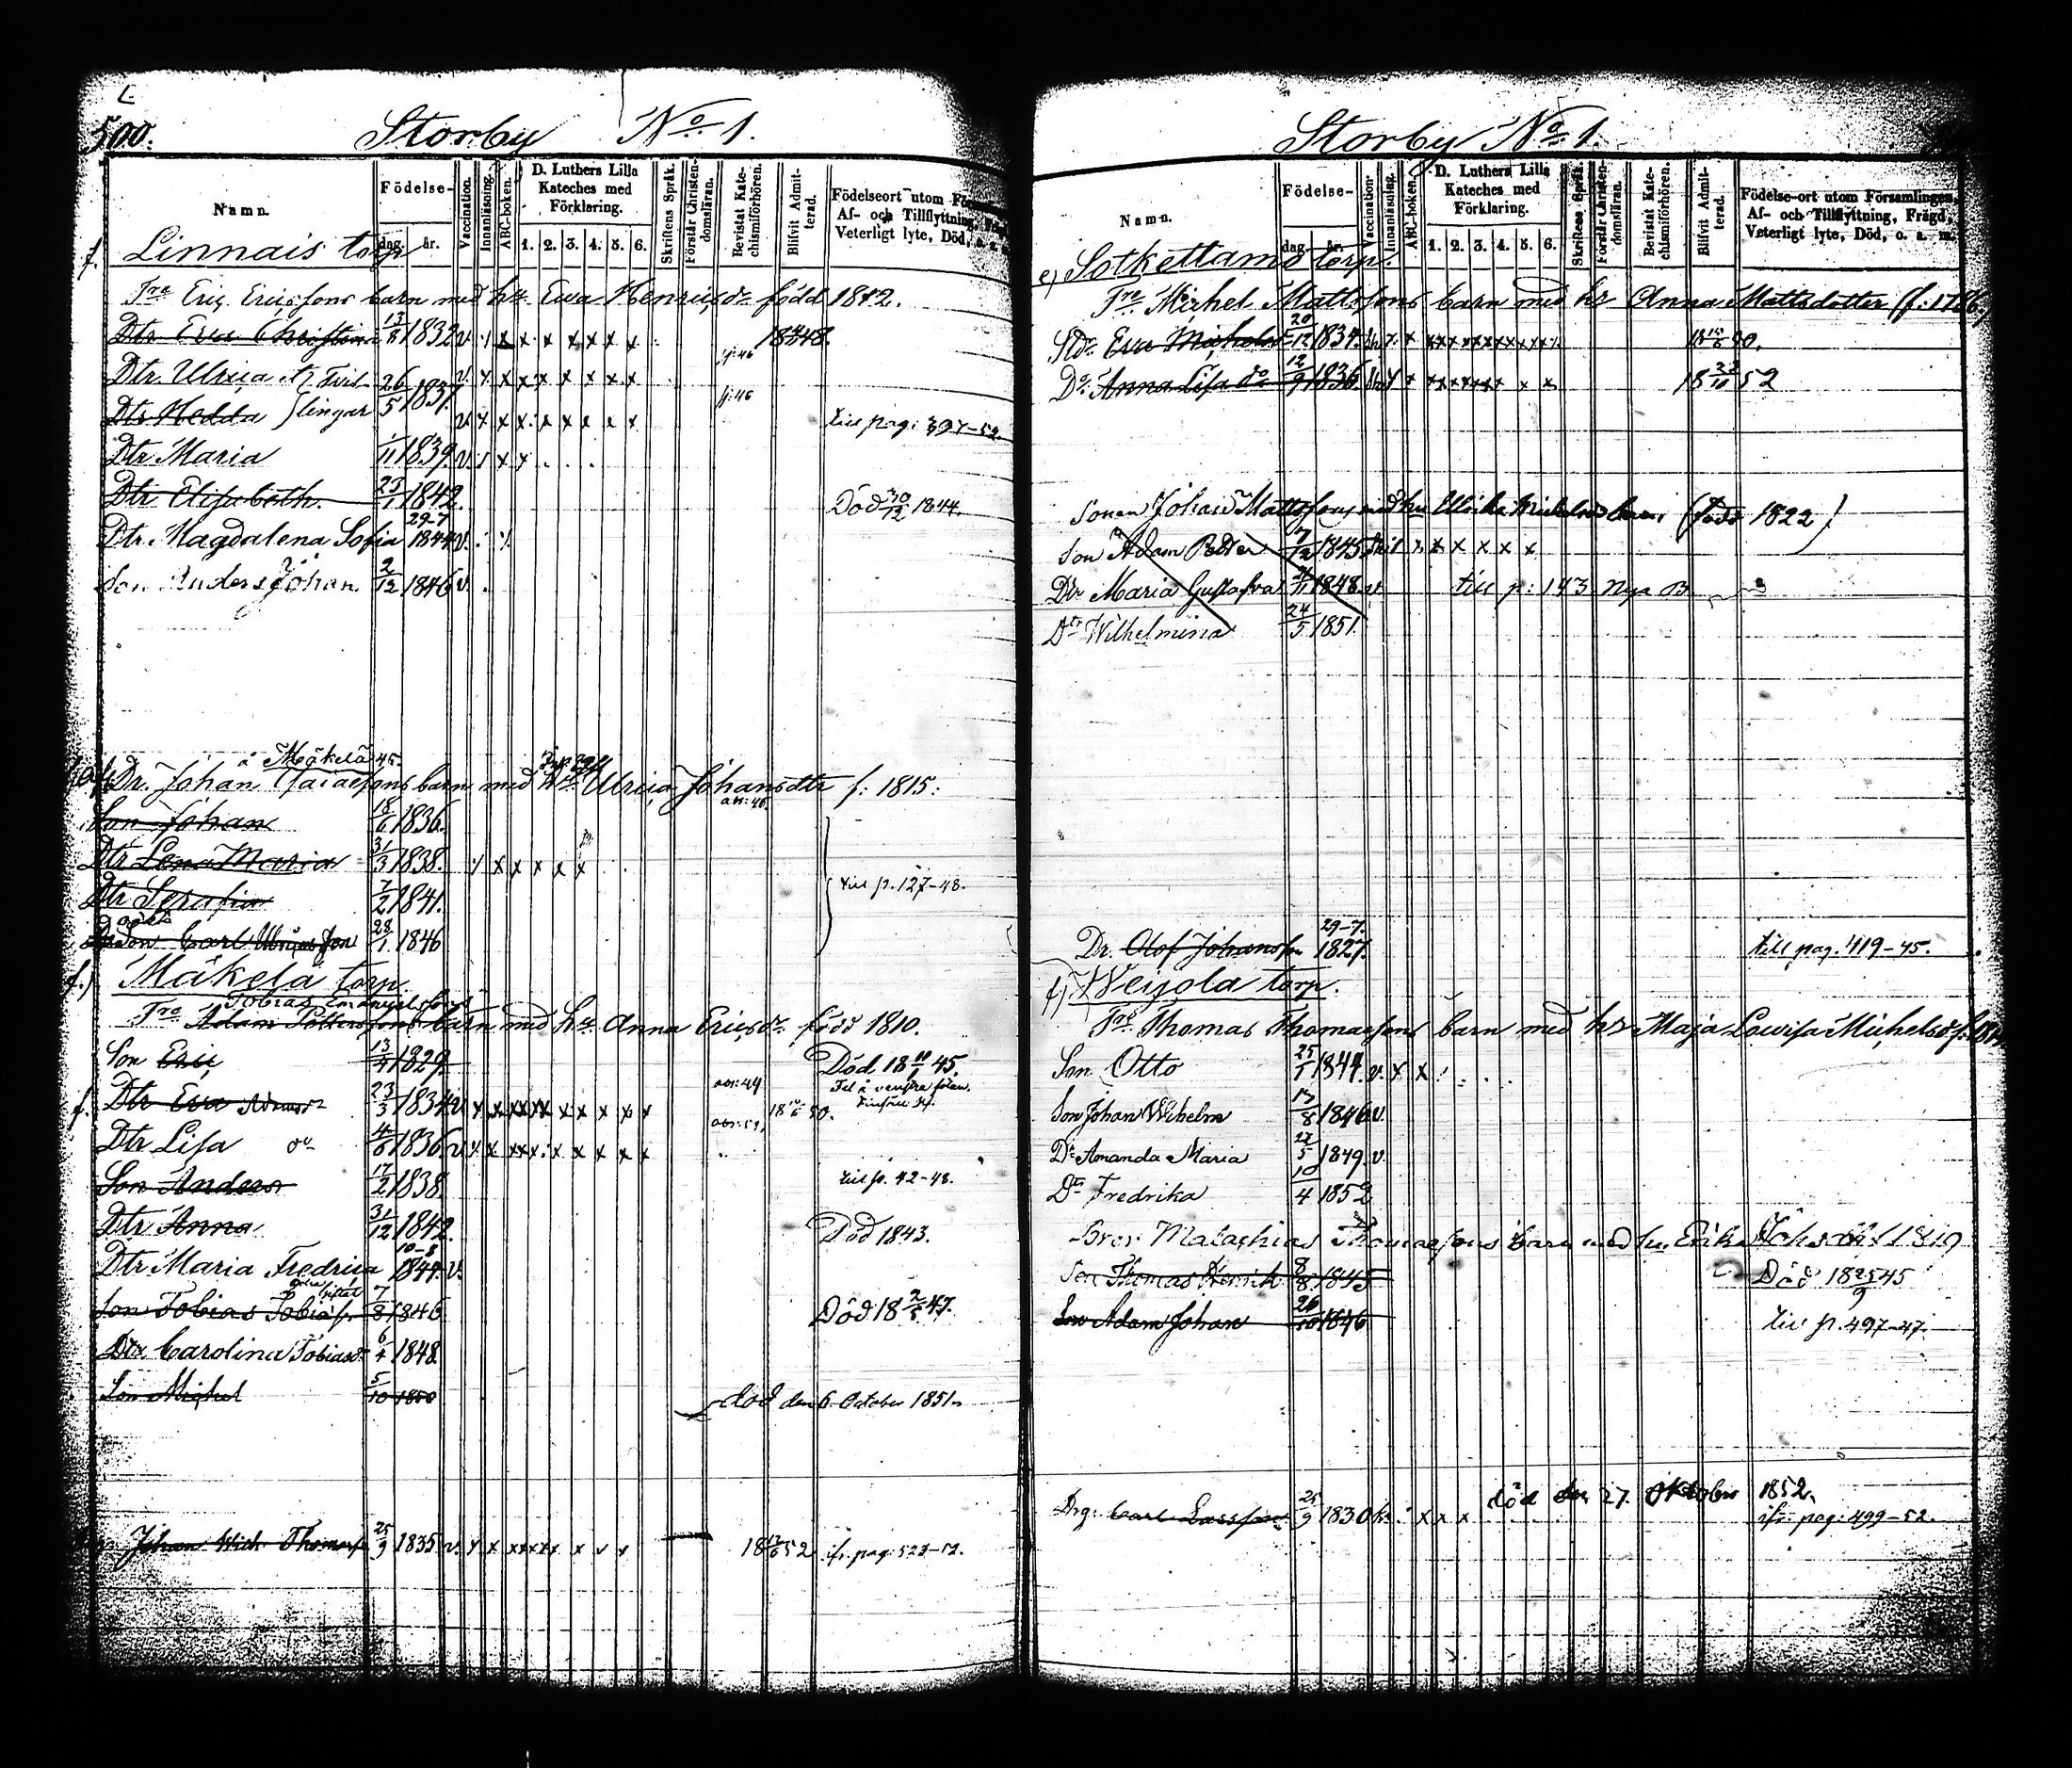 500.
Storby No 1.
Namn.
Födelse-
dag. år.
Vaccination.
Innanläsning.
ABC-boken.
D. Luthers Lilla Kateches med Förklaring.
1. 2. 3. 4. 5. 6.
Skriftens Språk.
Förstår Christendomsläran.
Bevistat Katechismiförhören.
Blifvit Admitterad.
Födelseort utom
Af- och Tillflyttning,
Veterligt lyte, Död,
f. Linnais torp
Tre Eric Ericssons barn med hu Ewa Henricsdr född 1812.
Dtr Eva Christina 13/6 1832 v. 1848.
Dtr. Ulrica Tvil- 26/5 1837. v.
Dtr Hedda lingar v. till pag: 397-52.
Dtr Maria 1/11 1839. v.
Dtr Elisabeth. 23/1 1842. Död 30/12 1844.
Dtr Magdalena Sofia 29-7 1844 v.
Son Anders Johan. 2/12 1846 v.
å Mäkelä 45.
Dr. Johan Isacssons barn med hu Ulrica Johansdtr f: 1815:
Son Johan 18/6 1836.
Dtr Lena Maria 31/3 1838.
Dtr Serafia 7/2 1841. till p. 127-48.
Son Carl 28/1 1846
f.) Mäkelä torp.
Tobias Emanuelssons
Tre Adam Pettersons barn med hu Anna Ericsdr född 1810.
Son Eric 13/4 1829. Död 18 11/1 45.
Dtr Eva Adamsdr 23/3 1834 v. 18 50.
Dtr Lisa dr 4/6 1836 v.
Son Anders 17/2 1838. till p. 42-48.
Dtr Anna 31/12 1842. Död 1843.
Dtr Maria Fredrica 10-8 1844. v.
Son Tobias Tobiass. 7/8 1846 Död 18 2/5 47.
Dtr Carolina Tobiasdr 6/4 1848.
Son Michel 5/10 1850 död den 6 October 1851.
Johan Mich Thomass. 25/9 1835 v. 18 52 ifr. pag: 523-52.
Storby No 1.
Namn.
Födelse-
dag. år.
Vaccination.
Innanläsning.
ABC-boken.
D. Luthers Lilla Kateches med Förklaring.
1. 2. 3. 4. 5. 6.
Skriftens Språk.
Förstår Christendomsläran.
Bevistat Katechismiförhören.
Blifvit Admitterad.
Födelse-ort utom Församlingen,
Af- och Tillflyttning, Frägd,
Veterligt lyte, Död, o. a. m.
e) Sotkettamo torp.
Tre Michel Mattssons barn med hr Anna Mattsdotter (f: 1786.)
Eva Michelsd 20/12 1834. 18 50.
Dr. Anna Lisa do 12/9 1836. 18 52
Sonen Johan Mattssons med hu Ulrika Michelsd barn (född 1822)
Son Adam Petter 7/12 1845
Dtr Maria Gustafva 1848. v. till p: 143 Nya B
Dtr Wilhelmina 24/5 1851.
Dr. Olof Johansson 29-7. 1827. till pag. 419-45.
f) Weijola torp.
Tre Thomas Thomassons barn med hr Maja Lowisa Michelsdr
Son Otto 25/1 1844. v.
Son Johan Wilhelm 17/8 1846 v.
Dr Amanda Maria 27/5 1849. v.
Dr Fredrika 10/4 1852
Bror. Malachias Thomassons barn med hu Erika Johsdtr f 1819
Son Thomas Henrik 8/8 1845 Död 18 25/9 45
Son Adam Johan 26/10 1846 till p. 497-47.
Drg: Carl Larsson 25/9 1830 död den 27. Oktober 1852.
ifr. pag: 499-52.